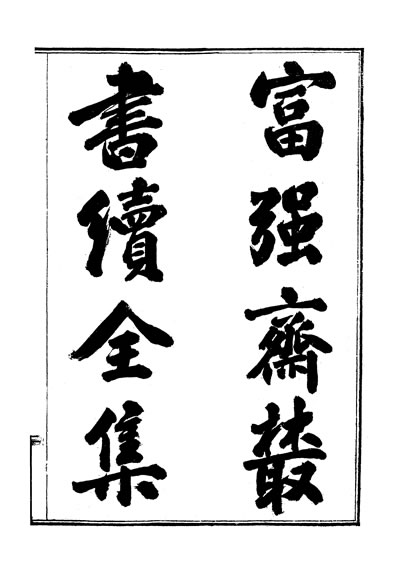 富强齋叢
書續全集